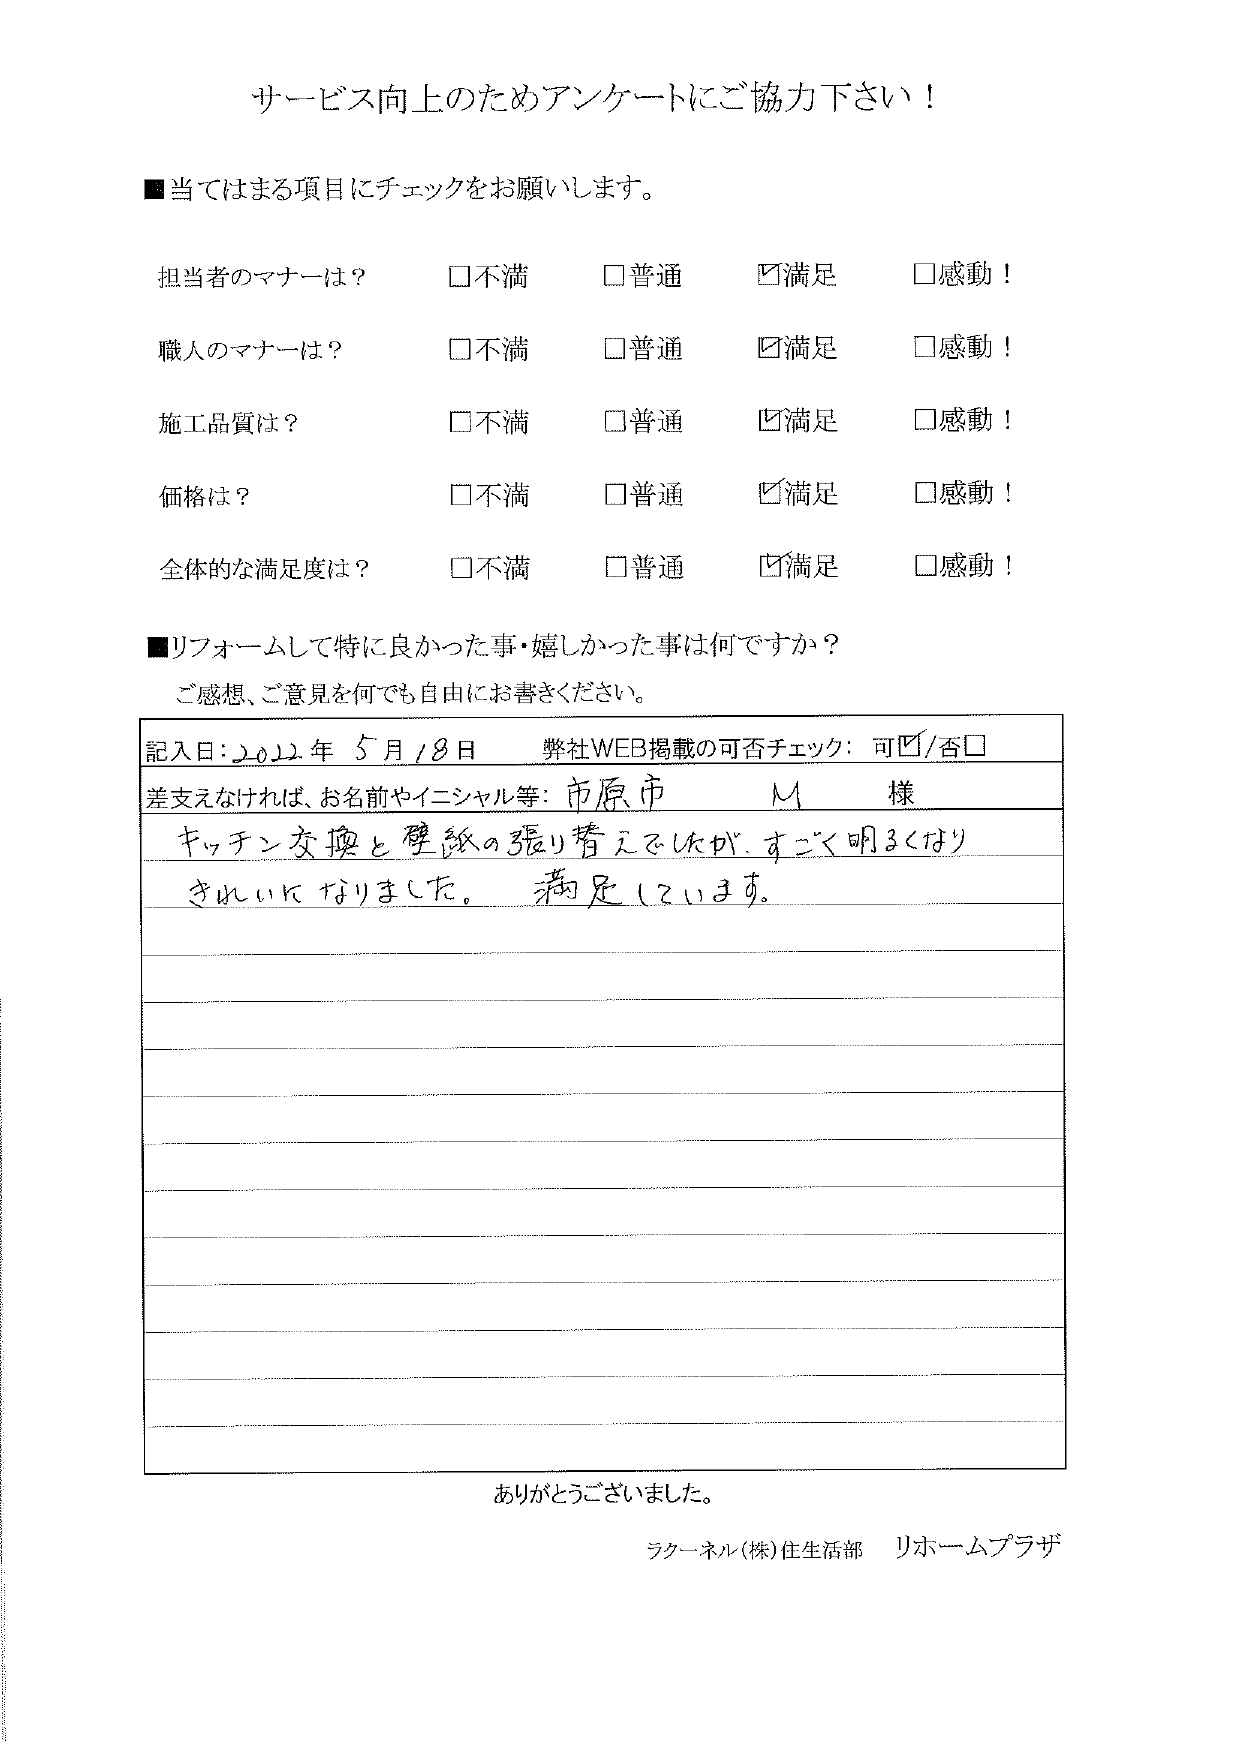 サービス向上のためアンケートにご協力下さい！
■当てはまる項目にチェックをお願いします。
担当者のマナーは？ □不満 □普通 ☑満足 □感動！
職人のマナーは？ □不満 □普通 ☑満足 □感動！
施工品質は？ □不満 □普通 ☑満足 □感動！
価格は？ □不満 □普通 ☑満足 □感動！
全体的な満足度は？ □不満 □普通 ☑満足 □感動！
■リフォームして特に良かった事・嬉しかった事は何ですか？
ご感想、ご意見を何でも自由にお書きください。
記入日：2022年 5月18日 弊社WEB掲載の可否チェック： 可☑/否□
差支えなければ、お名前やイニシャル等： 市原市 M 様
キッチン交換と壁紙の張り替えでしたが、すごく明るくなり
きれいになりました。 満足しています。
ありがとうございました。
ラクーネル（株）住生活部 リホームプラザ